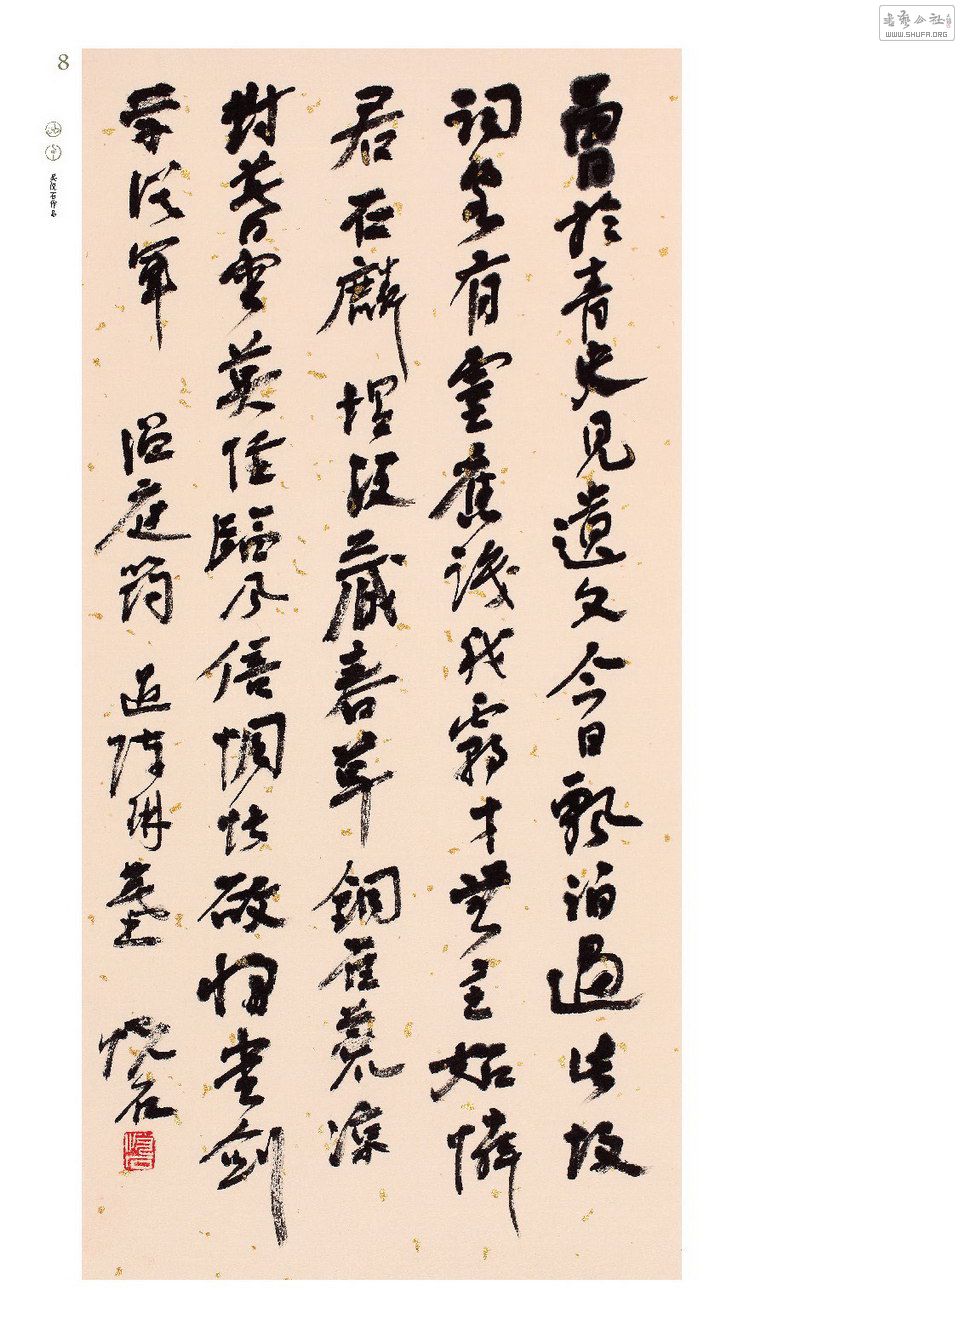 書藝公社
WWW.SHUFA.ORG
8
吴悦石作品
曾於青史見遺文今日飄泊過此坟
詞客有靈應識我霸才無主始憐
君石麟埋没藏春草銅雀荒涼
對暮雲莫怪臨風倍惆悵欲將書劍
學從軍 温庭筠 過陳琳墓 悦石